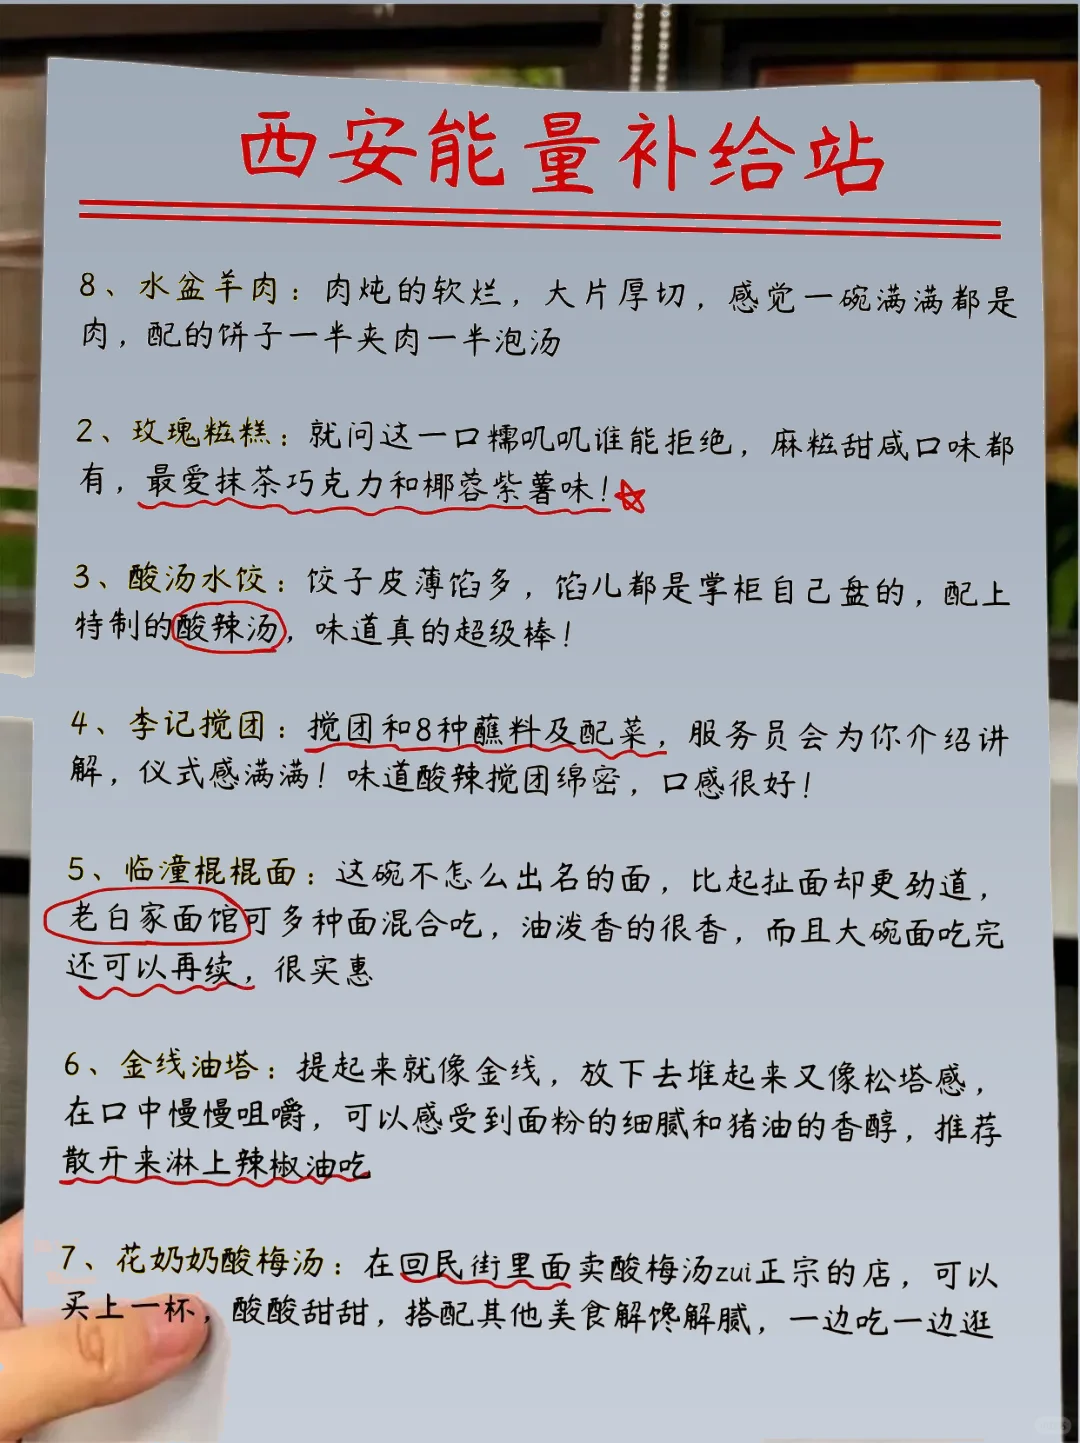 西安能量补给站
8、水盆羊肉：肉炖的软烂，大片厚切，感觉一碗满满都是
肉，配的饼子一半夹肉一半泡汤
2、玫瑰糍糕：就问这一口糯叽叽谁能拒绝，麻糍甜咸口味都
有，最爱抹茶巧克力和椰蓉紫薯味！
3、酸汤水饺：饺子皮薄馅多，馅儿都是掌柜自己盘的，配上
特制的酸辣汤，味道真的超级棒！
4、李记搅团：搅团和8种蘸料及配菜，服务员会为你介绍讲
解，仪式感满满！味道酸辣搅团绵密，口感很好！
5、临潼棍棍面：这碗不怎么出名的面，比起扯面却更劲道，
老白家面馆可多种面混合吃，油泼香的很香，而且大碗面吃完
还可以再续，很实惠
6、金线油塔：提起来就像金线，放下去堆起来又像松塔感，
在口中慢慢咀嚼，可以感受到面粉的细腻和猪油的香醇，推荐
散开来淋上辣椒油吃
7、花奶奶酸梅汤：在回民街里面卖酸梅汤zui正宗的店，可以
买上一杯，酸酸甜甜，搭配其他美食解馋解腻，一边吃一边逛